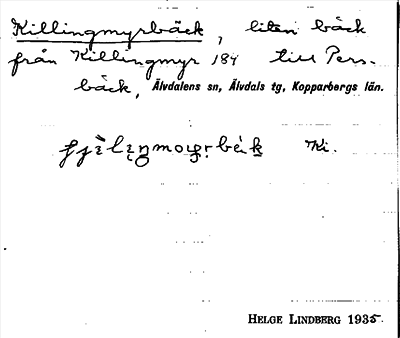 Killingmyrbäck, liten bäck
från Killingmyr 184 till Pers-
bäck, Älvdalens sn, Älvdals tg, Kopparbergs län.
Ki.
HELGE LINDBERG 1935.